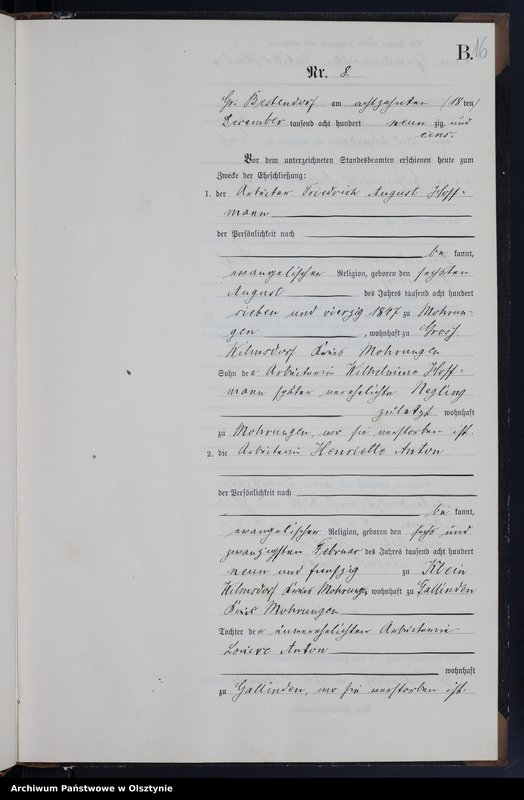 B. 16
Nr. 8.
Gr. Bestendorf am achtzehnten (18ten)
December tausend acht hundert neun zig und
eins.
Vor dem unterzeichneten Standesbeamten erschienen heute zum
Zwecke der Eheschließung:
1. der Arbeiter Friedrich August Hoff-
mann
der Persönlichkeit nach
be kannt,
evangelischer Religion, geboren den sechsten
August des Jahres tausend acht hundert
sieben und vierzig 1847 zu Mohrun-
gen, wohnhaft zu Groß
Wilmsdorf Kreis Mohrungen
Sohn der Arbeiterin Wilhelmine Hoff-
mann später verehelichte Negling
zuletzt wohnhaft
zu Mohrungen, wo sie verstorben ist.
2. die Arbeiterin Henriette Anton
der Persönlichkeit nach
be kannt,
evangelischer Religion, geboren den sechs und
zwanzigsten Februar des Jahres tausend acht hundert
neun und fünfzig zu Klein
Wilmsdorf Kreis Mohrung., wohnhaft zu Gallinden
Kreis Mohrungen
Tochter der unverehelichten Arbeiterin
Louise Anton
wohnhaft
zu Gallinden, wo sie verstorben ist.
Archiwum Państwowe w Olsztynie